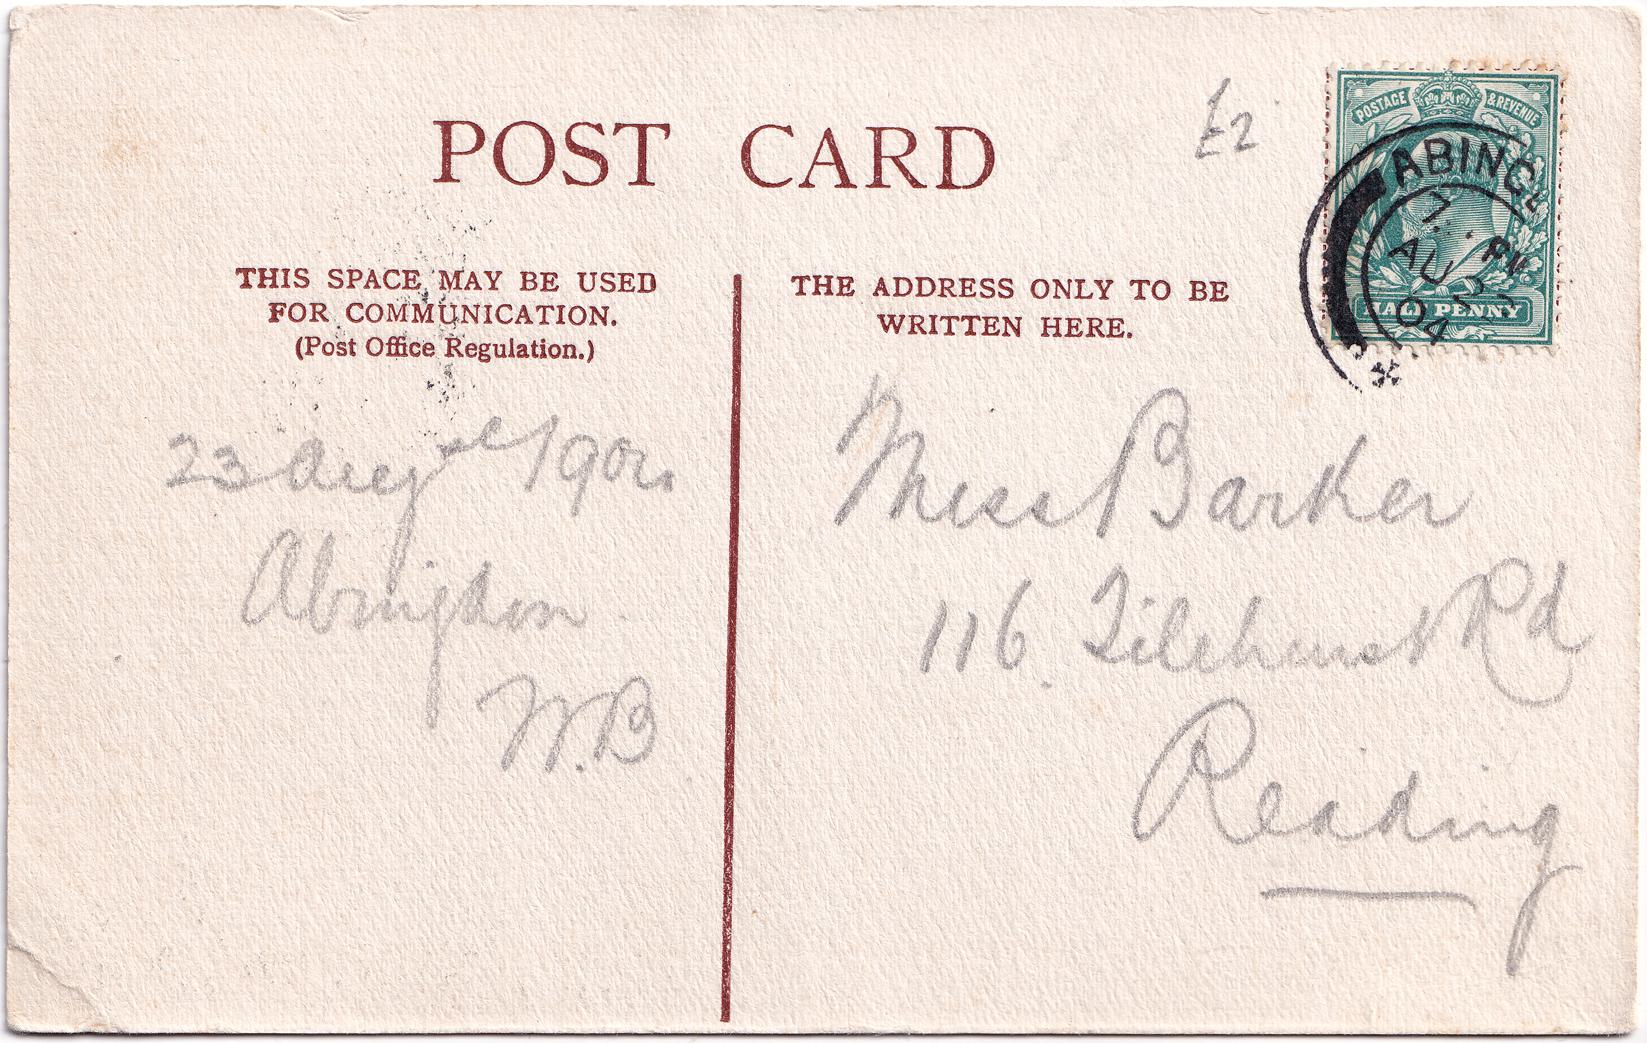 POST CARD
£2
POSTAGE & REVENUE
HALF PENNY
ABING
7 PM
AU 23
04
THIS SPACE MAY BE USED
FOR COMMUNICATION.
(Post Office Regulation.)
THE ADDRESS ONLY TO BE
WRITTEN HERE.
23 August 1904
Abingdon
W.B
Miss Barker
116 Tilehurst Rd
Reading